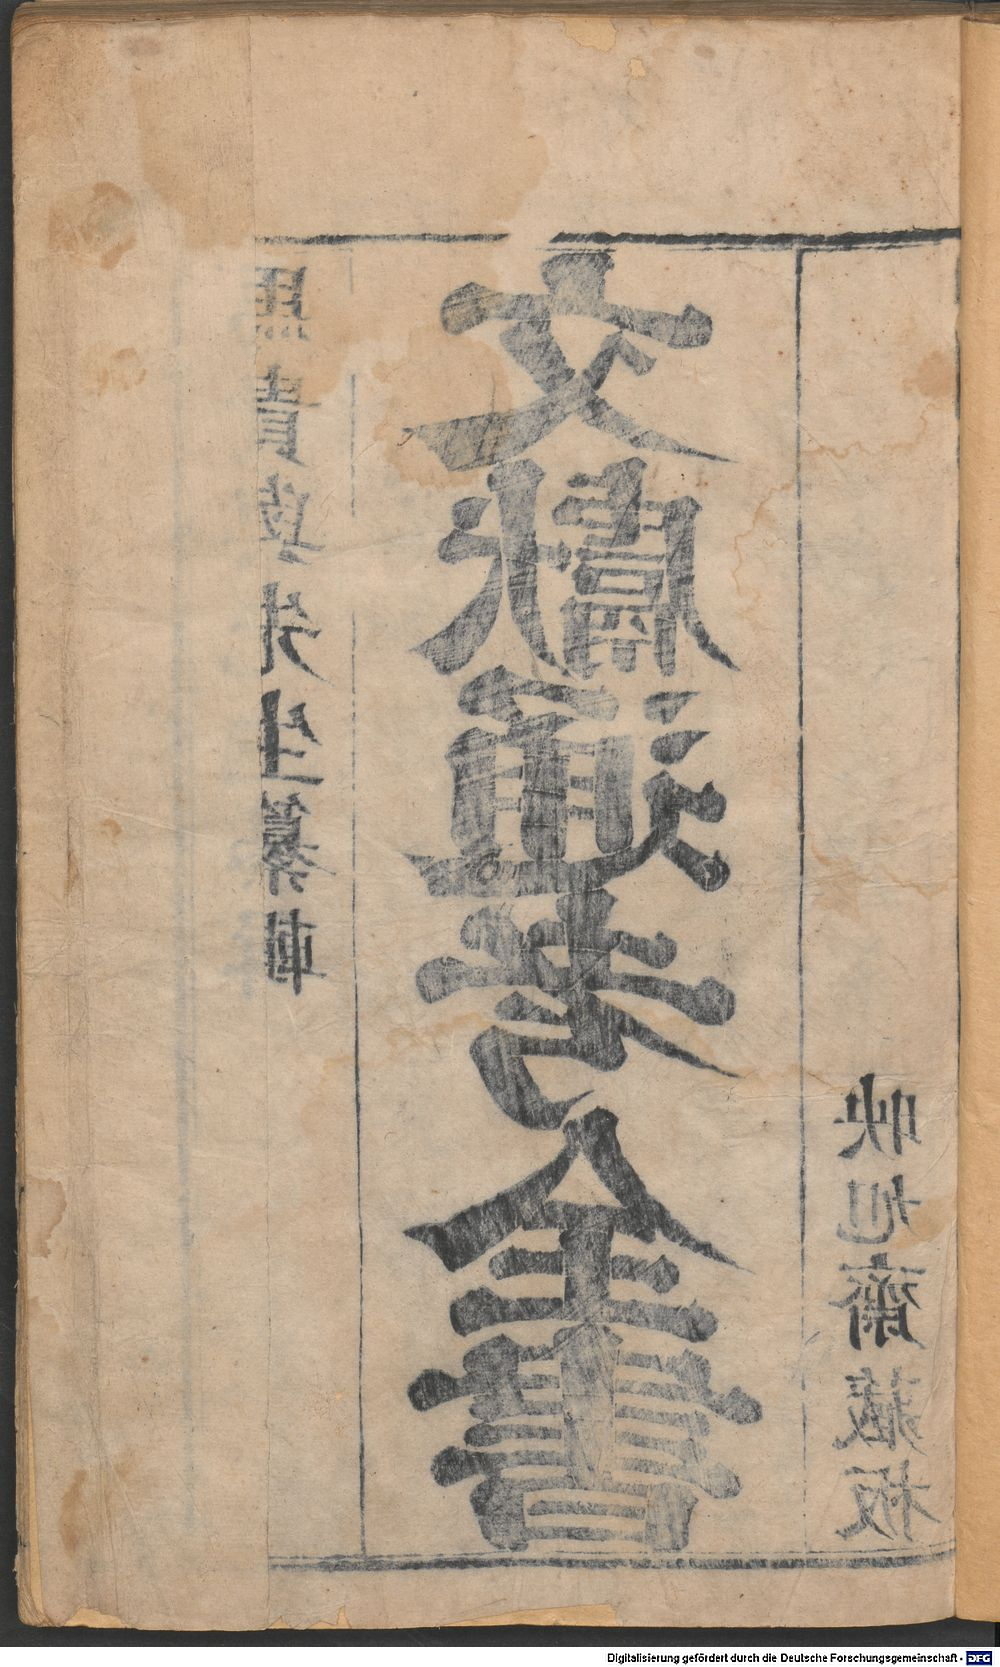 馬貴與先生纂輯
文獻通考全書
映旭齋藏板
Digitalisierung gefördert durch die Deutsche Forschungsgemeinschaft - DFG